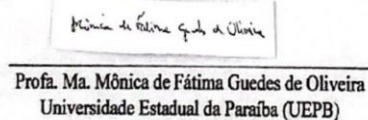 Mônica de Fátima Guedes de Oliveira
Profa. Ma. Mônica de Fátima Guedes de Oliveira
Universidade Estadual da Paraíba (UEPB)